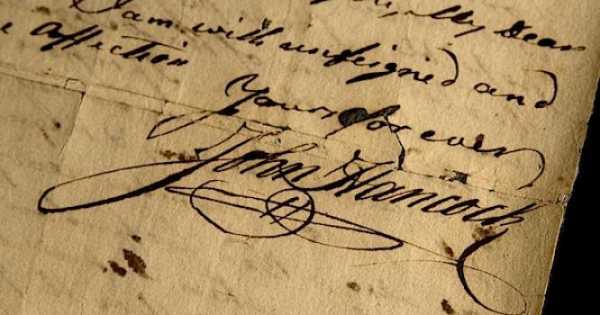 My Dear
I am with unfeigned and
affection
Yours for ever
John Hancock